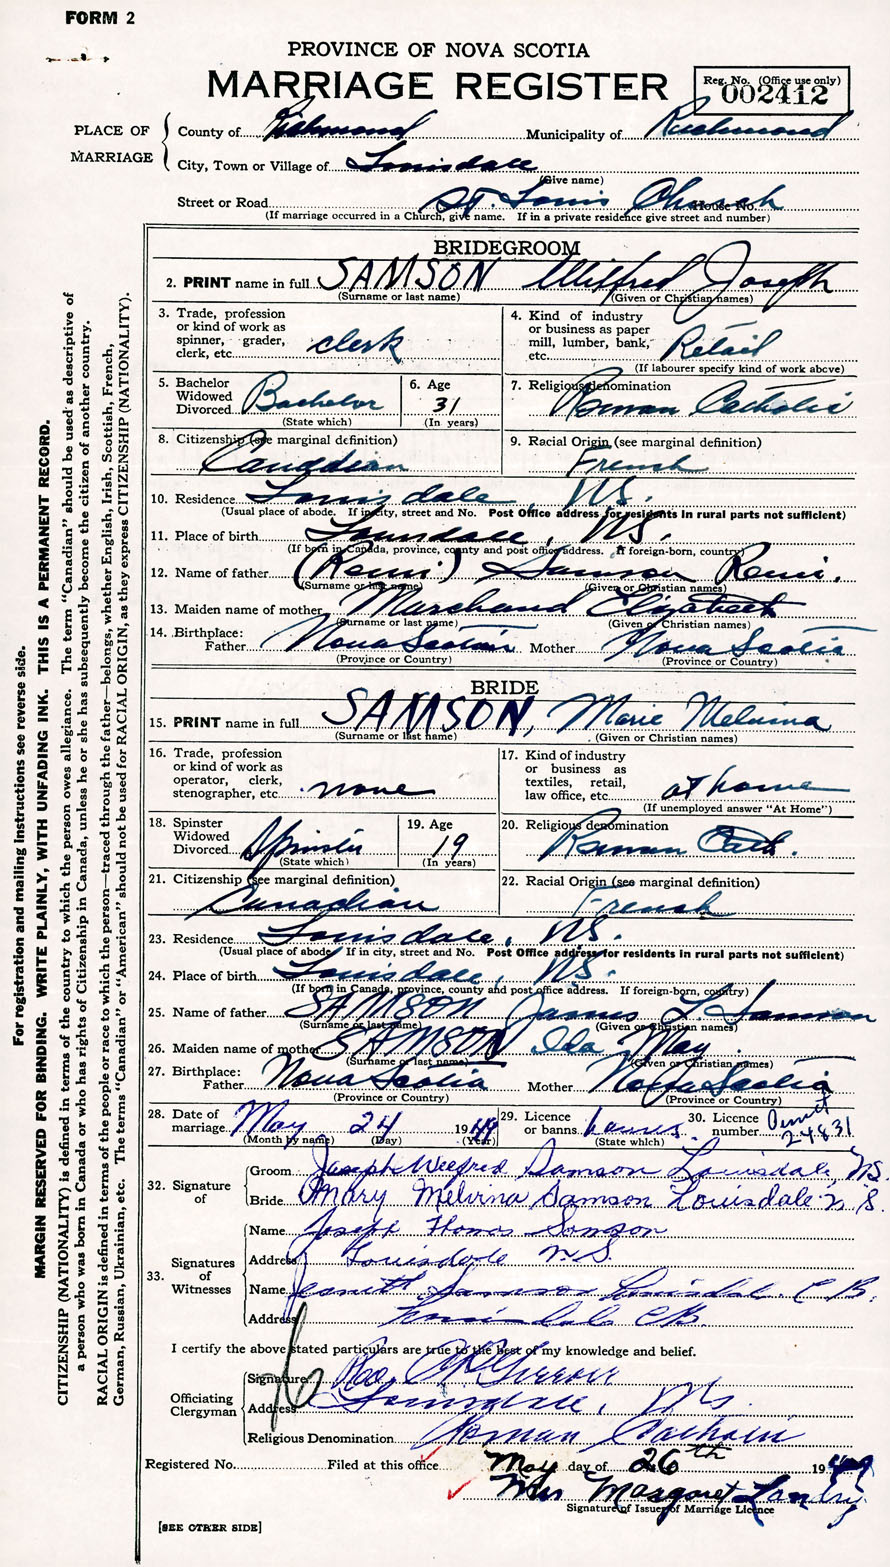 FORM 2
PROVINCE OF NOVA SCOTIA
MARRIAGE REGISTER
Reg. No. (Office use only)
002412
PLACE OF MARRIAGE
County of Richmond Municipality of Richmond
City, Town or Village of Louisdale
(Give name)
Street or Road St. Louis Church House No.
(If marriage occurred in a Church, give name. If in a private residence give street and number)
BRIDEGROOM
2. PRINT name in full SAMSON Wilfred Joseph
(Surname or last name) (Given or Christian names)
3. Trade, profession
or kind of work as
spinner, grader,
clerk, etc. clerk
4. Kind of industry
or business as paper
mill, lumber, bank,
etc. Retail
(If labourer specify kind of work above)
5. Bachelor
Widowed
Divorced Bachelor
(State which)
6. Age
31
(In years)
7. Religious denomination
Roman Catholic
8. Citizenship (see marginal definition)
Canadian
9. Racial Origin (see marginal definition)
French
10. Residence Louisdale, NS.
(Usual place of abode. If in city, street and No. Post Office address for residents in rural parts not sufficient)
11. Place of birth Louisdale, NS.
(If born in Canada, province, county and post office address. If foreign-born, country)
12. Name of father (Remi) Samson Remi.
(Surname or last name) (Given or Christian names)
13. Maiden name of mother Marchand Elizabeth
(Surname or last name) (Given or Christian names)
14. Birthplace:
Father Nova Scotia Mother Nova Scotia
(Province or Country) (Province or Country)
BRIDE
15. PRINT name in full SAMSON, Marie Melvina
(Surname or last name) (Given or Christian names)
16. Trade, profession
or kind of work as
operator, clerk,
stenographer, etc. none
17. Kind of industry
or business as
textiles, retail,
law office, etc. at home
(If unemployed answer "At Home")
18. Spinster
Widowed
Divorced Spinster
(State which)
19. Age
19
(In years)
20. Religious denomination
Roman Cath.
21. Citizenship (see marginal definition)
Canadian
22. Racial Origin (see marginal definition)
French
23. Residence Louisdale, NS.
(Usual place of abode. If in city, street and No. Post Office address for residents in rural parts not sufficient)
24. Place of birth Louisdale, NS.
(If born in Canada, province, county and post office address. If foreign-born, country)
25. Name of father SAMSON James L Samson
(Surname or last name) (Given or Christian names)
26. Maiden name of mother SAMSON Ida May.
(Surname or last name) (Given or Christian names)
27. Birthplace:
Father Nova Scotia Mother Nova Scotia
(Province or Country) (Province or Country)
28. Date of
marriage May 24 1949
(Month by name) (Day) (Year)
29. Licence
or banns banns.
(State which)
30. Licence
number Permit
24831
32. Signature
of
Groom Joseph Wilfred Samson Louisdale, NS.
Bride Mary Melvina Samson Louisdale N.S.
33. Signatures
of
Witnesses
Name Joseph Thomas Samson
Address Louisdale N.S.
Name Samson Louisdale. C.B.
Address Louisdale C.B.
I certify the above stated particulars are true to the best of my knowledge and belief.
Officiating
Clergyman
Signature Rev.
Address Louisdale, N.S.
Religious Denomination Roman Catholic
Registered No. Filed at this office May day of 26th 1949
Mrs Margaret Landry
Signature of Issuer of Marriage Licence
[SEE OTHER SIDE]
For registration and mailing instructions see reverse side.
MARGIN RESERVED FOR BINDING. WRITE PLAINLY, WITH UNFADING INK. THIS IS A PERMANENT RECORD.
CITIZENSHIP (NATIONALITY) is defined in terms of the country to which the person owes allegiance. The term "Canadian" should be used as descriptive of
a person who was born in Canada or who has rights of Citizenship in Canada, unless he or she has subsequently become the citizen of another country.
RACIAL ORIGIN is defined in terms of the people or race to which the person—traced through the father—belongs, whether English, Irish, Scottish, French,
German, Russian, Ukrainian, etc. The terms "Canadian" or "American" should not be used for RACIAL ORIGIN, as they express CITIZENSHIP (NATIONALITY).